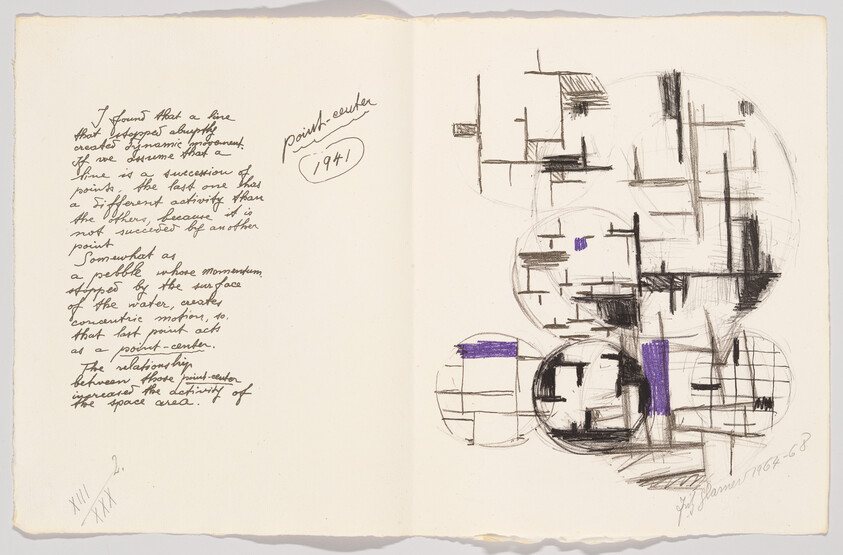 I found that a line
that stopped abruptly
created dynamic movement.
If we assume that a
line is a succession of
points, the last one has
a different activity than
the others, because it is
not succeded by another
point
Somewhat as
a pebble whose momentum
stopped by the surface
of the water, creates
concentric motion, so,
that last point acts
as a point-center.
The relationship
between those point-center
increased the activity of
the space area.
point-center
1941
2.
XIII
XXX
Fritz Glarner 1964-68